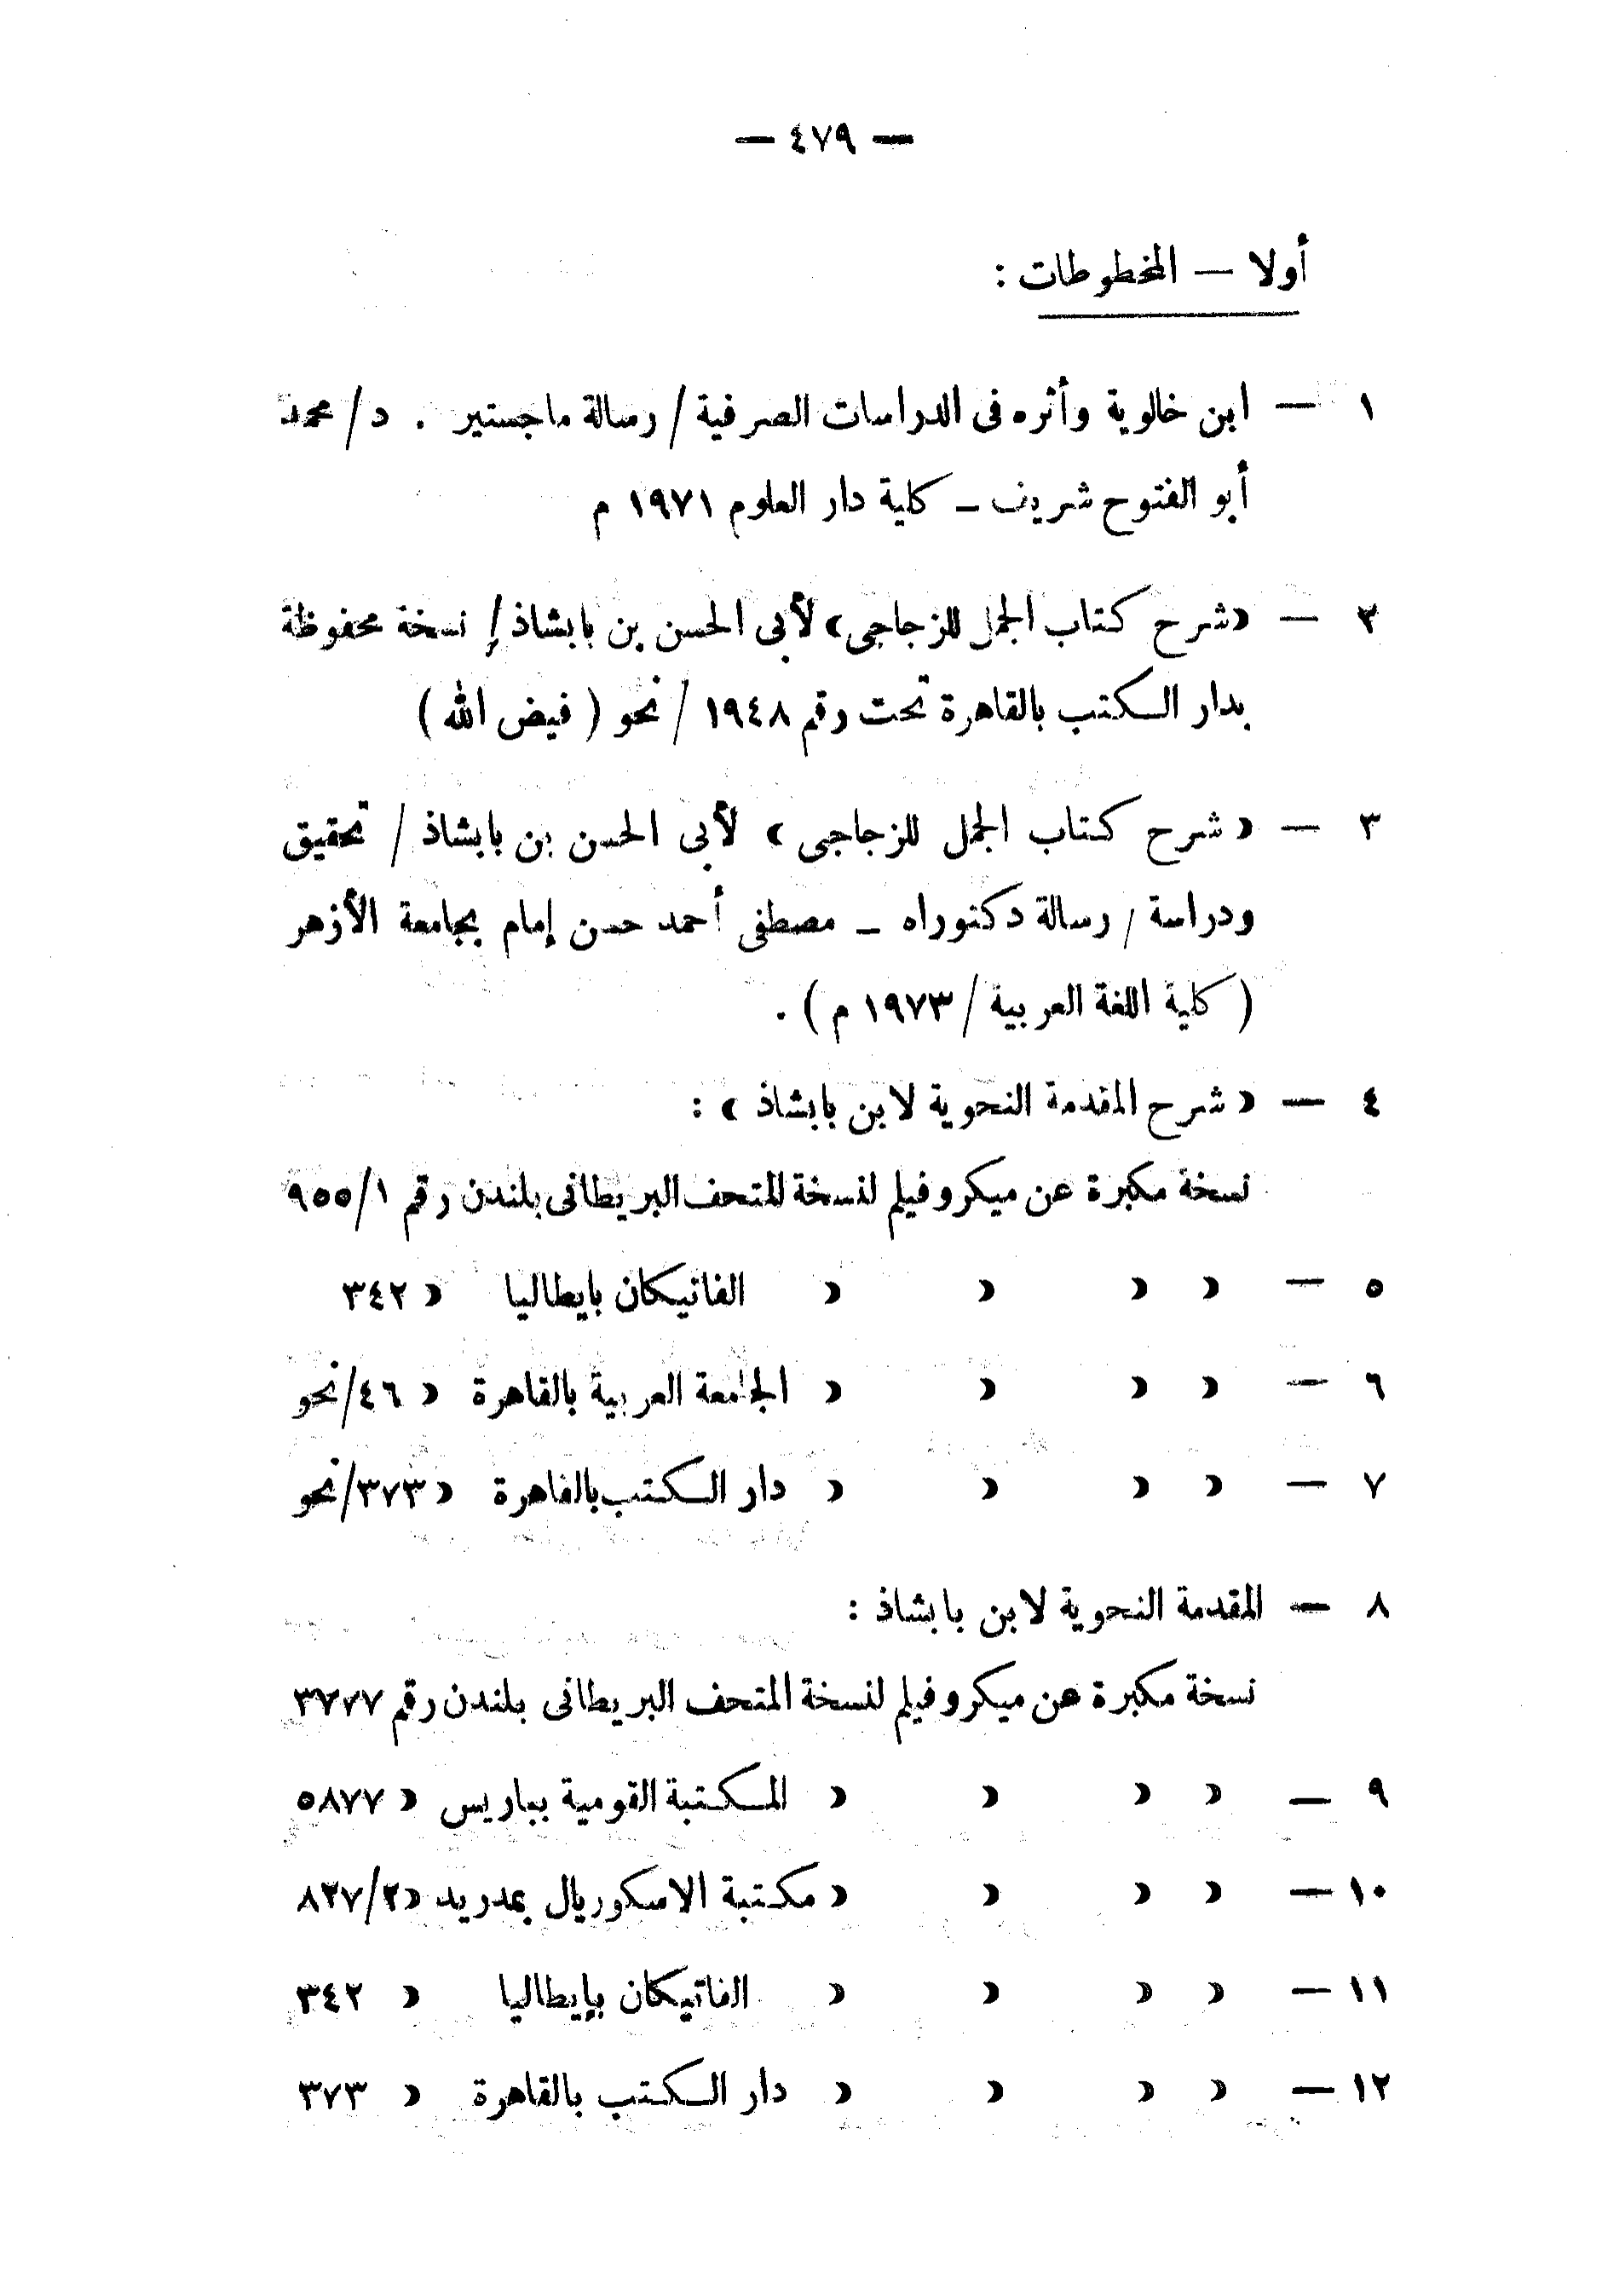 — ٤٧٩ —
أولا — المخطوطات :
١ — ابن خالوية وأثره فى الدراسات الصرفية / رسالة ماجستير . د / محمد
أبو الفتوح شريف – كلية دار العلوم ١٩٧١ م
٢ — «شرح كتاب الجمل للزجاجى» لأبى الحسن بن بابشاذ / نسخة محفوظة
بدار الكتب بالقاهرة تحت رقم ١٩٤٨ / نحو ( فيض الله )
٣ — « شرح كتاب الجمل للزجاجى » لأبى الحسن بن بابشاذ / تحقيق
ودراسة / رسالة دكتوراه – مصطفى أحمد حسن إمام بجامعة الأزهر
( كلية اللغة العربية / ١٩٧٣ م ) .
٤ — « شرح المقدمة النحوية لابن بابشاذ » :
نسخة مكبرة عن ميكروفيلم لنسخة المتحف البريطانى بلندن رقم ٩٥٥/١
٥ — « « « « الفاتيكان بإيطاليا « ٣٤٢
٦ — « « « « الجامعة العربية بالقاهرة « ٤٦/نحو
٧ — « « « « دار الكتب بالقاهرة « ٣٧٣/نحو
٨ — المقدمة النحوية لابن بابشاذ :
نسخة مكبرة عن ميكروفيلم لنسخة المتحف البريطانى بلندن رقم ٣٧٧٧
٩ — « « « « المكتبة القومية بباريس « ٥٨٧٧
١٠ — « « « « مكتبة الاسكوريال بمدريد « ٨٢٧/٢
١١ — « « « « الفاتيكان بإيطاليا « ٣٤٢
١٢ — « « « « دار الكتب بالقاهرة « ٣٧٣